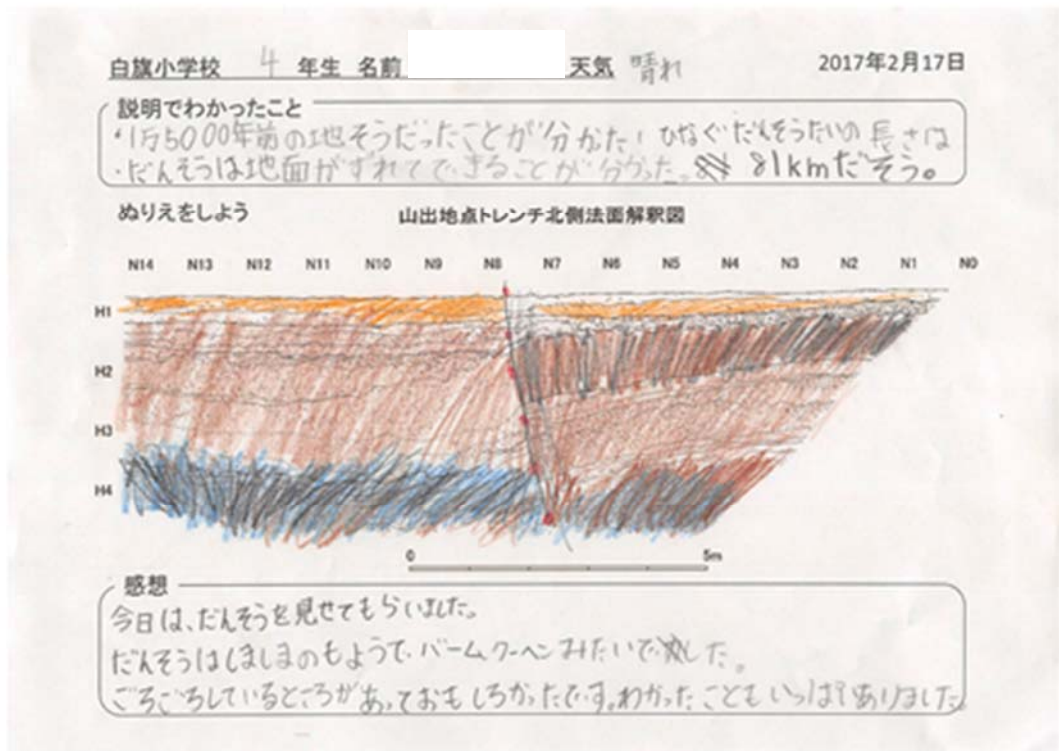 白旗小学校 4 年生 名前 天気 晴れ 2017年2月17日
説明でわかったこと
・1万5000年前の地そうだったことが分かた! ひなぐだんそうたいの長さは
・だんそうは地面がずれてできることが分かった。 81kmだそう。
ぬりえをしよう 山出地点トレンチ北側法面解釈図
N14 N13 N12 N11 N10 N9 N8 N7 N6 N5 N4 N3 N2 N1 N0
H1
H2
H3
H4
0 5m
感想
今日は、だんそうを見せてもらいました。
だんそうはしましまのもようで、バームクーヘンみたいでした。
ごろごろしているところがあっておもしろかったです。わかったこともいっぱいありました。